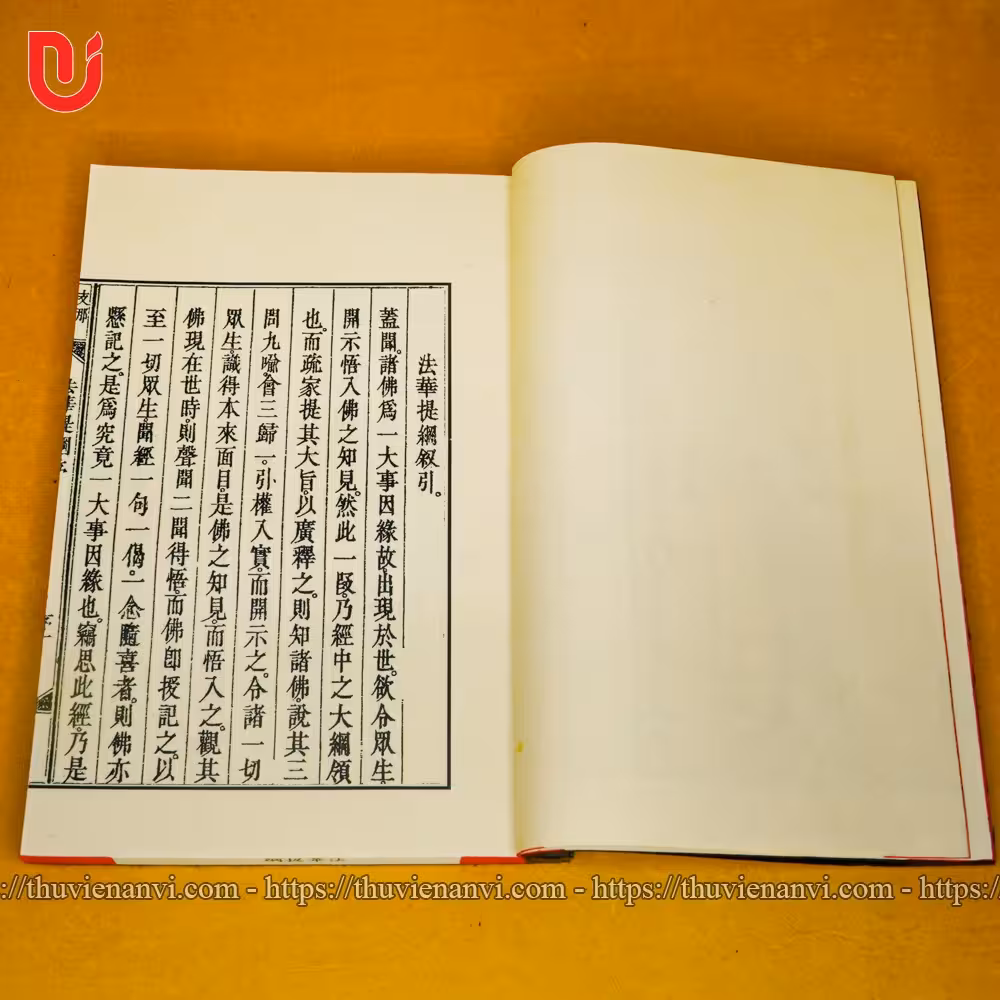 法華提綱叙引。
蓋聞。諸佛爲一大事因緣故。出現於世。欲令眾生。
開示悟入佛之知見。然此一段。乃經中之大綱領
也。而疏家提其大旨。以廣釋之。則知諸佛。說其三
周九喻。會三歸一。引權入實。而開示之。令諸一切
眾生。識得本來面目。是佛之知見。而悟入之。觀其
佛現在世時。則聲聞二聞得悟。而佛即授記之。以
至一切眾生。聞經一句一偈。一念隨喜者。則佛亦
懸記之。是爲究竟一大事因緣也。竊思此經。乃是
支那
法華提綱序
https://thuvienanvi.com - https://thuvienanvi.com - https://thuvienanvi.com - https://